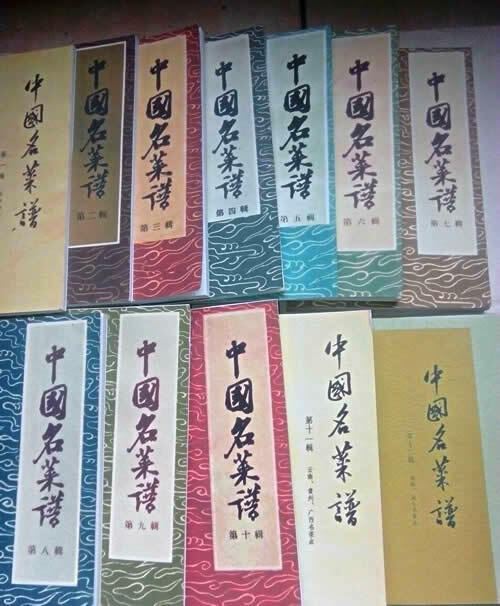 中國名菜譜
第一輯
中國名菜谱
第二輯
中國名菜谱
第三輯
中國名菜谱
第四輯
中國名菜谱
第五輯
中國名菜谱
第六輯
中國名菜谱
第七輯
中國名菜谱
第八輯
中國名菜谱
第九輯
中國名菜谱
第十輯
中國名菜譜
第十一輯
云南、貴州、广西名菜点
中國名菜譜
第十二輯